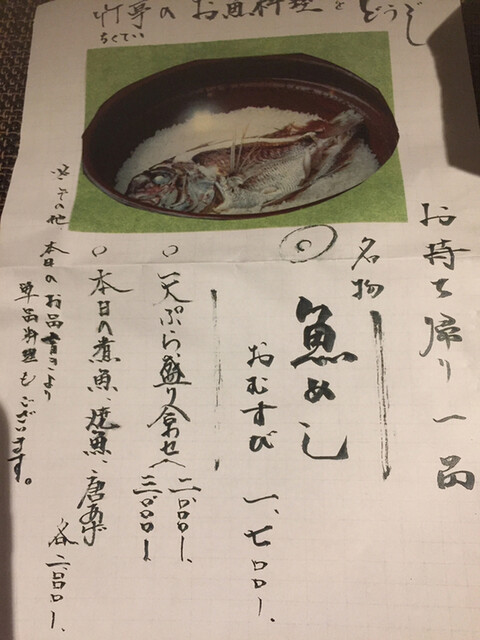 竹亭のお魚料理をどうぞ
ちくてい
お持ち帰り一品
名物
◎魚めし
おむすび 一、七〇〇-、
○天ぷら盛り合わせ 二、〇〇〇-、
三、〇〇〇-、
○本日の煮魚、焼魚、唐あげ
各二、〇〇〇-、
※その他 本日のお品書きより
単品料理もございます。